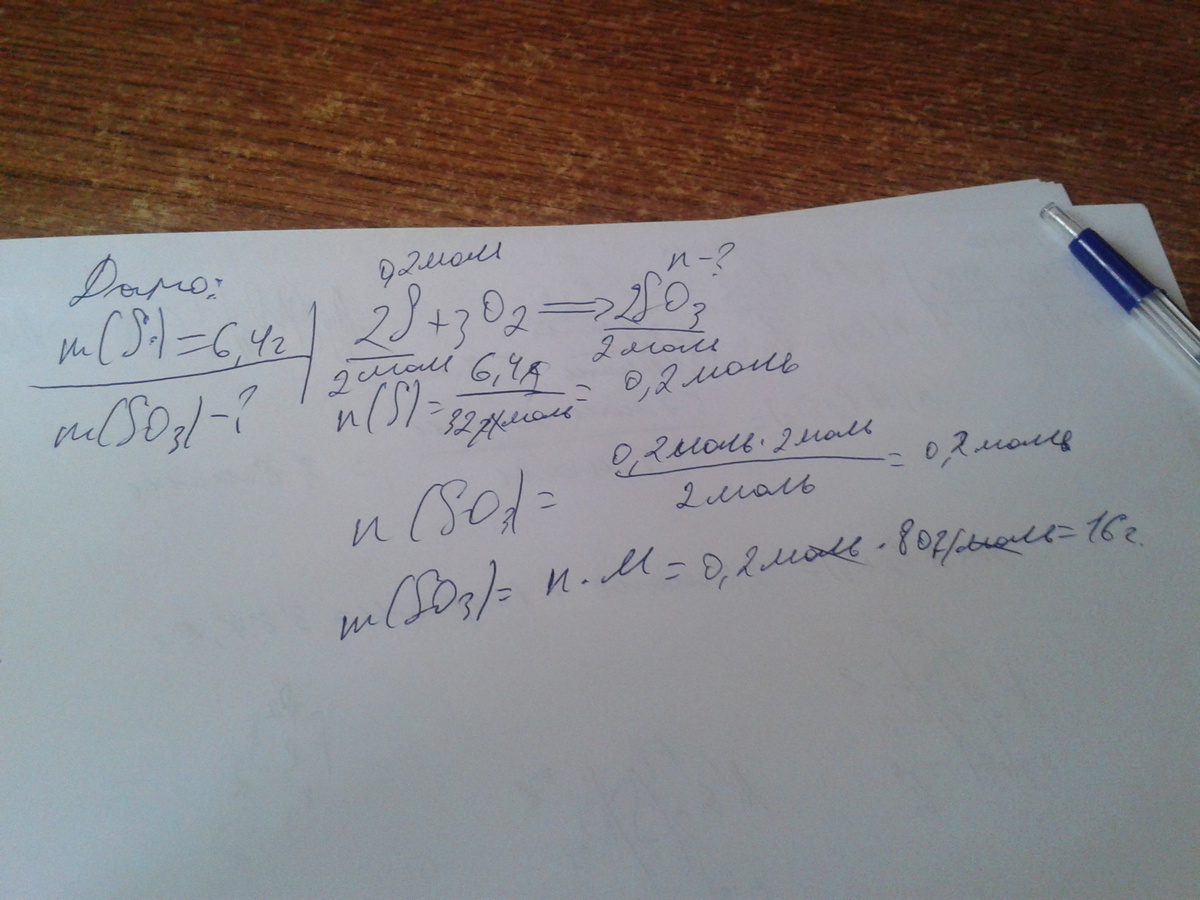 Дано:
m(S) = 6,4г
m(SO3) - ?
0,2моль n - ?
2S + 3O2 => 2SO3
2моль 2моль
n(S) = 6,4г / 32г/моль = 0,2моль
n(SO3) = 0,2моль · 2моль / 2моль = 0,2моль
m(SO3) = n · M = 0,2моль · 80г/моль = 16г.